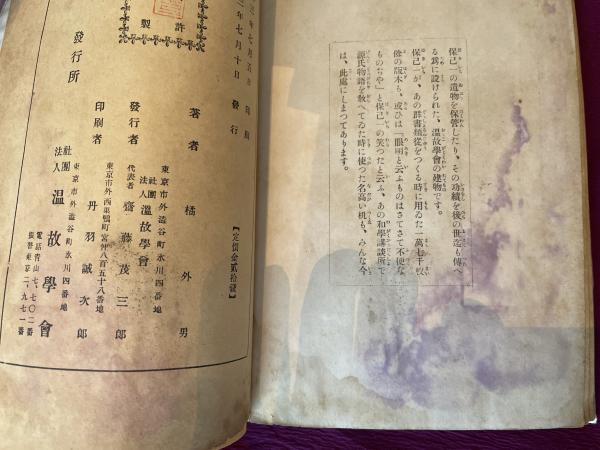 保己一の遺物を保管したり、その功績を後の世迄も傳へ
る爲に設けられた、溫故學會の建物です。
保己一が、あの群書類從をつくる時に用ゐた一萬七千枚
餘の版木も、或ひは『眼明と云ふものはさてさて不便な
ものぢや』と保己一の笑つたと云ふ、あの和學講談所で
源氏物語を敎へてゐた時に使つた名高い机も、みんな今
は、此處にしまつてあります。
許
製
年七月五日印刷
年七月十日發行
【定價金貳拾錢】
著者 橘外男
東京市外澁谷町氷川四番地
社團法人 溫故學會
發行者 代表者 齋藤茂三郎
東京市外西巢鴨町宮仲八百五十八番地
印刷者 丹羽誠次郎
發行所
東京市外澁谷町氷川四番地
社團法人 溫故學會
電話靑山七、七〇二番
振替東京二、九七一番